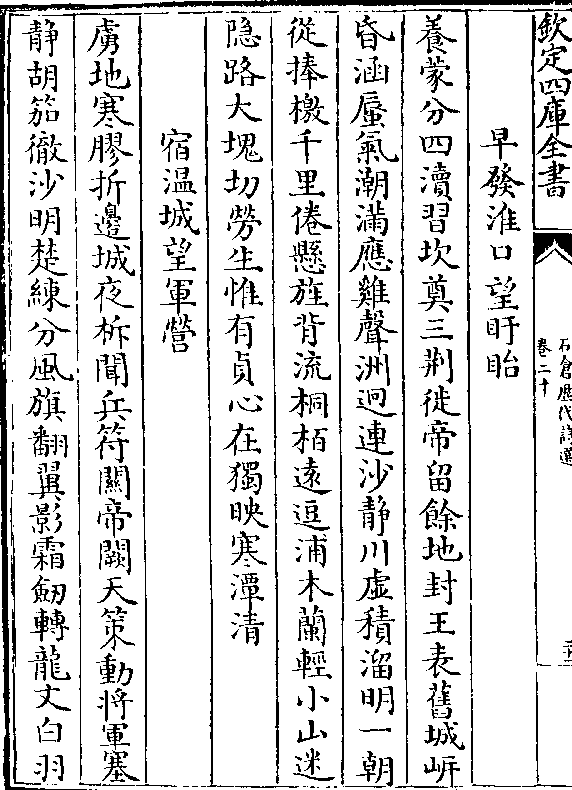 欽定四庫全書
石倉歷代詩選
卷二十
早發淮口望盱眙
養蒙分四瀆習坎奠三荆徙帝留餘地封王表舊城㟁
昏涵蜃氣潮滿應雞聲洲迥連沙静川虚積溜明一朝
從捧檄千里倦懸旌背流桐栢逺逗浦木蘭輕小山迷
隠路大塊切勞生惟有貞心在獨映寒潭清
宿温城望軍營
虜地寒膠折邊城夜柝聞兵符關帝闕天策動將軍塞
静胡笳徹沙明楚練分風旗翻翼影霜劒轉龍文白羽